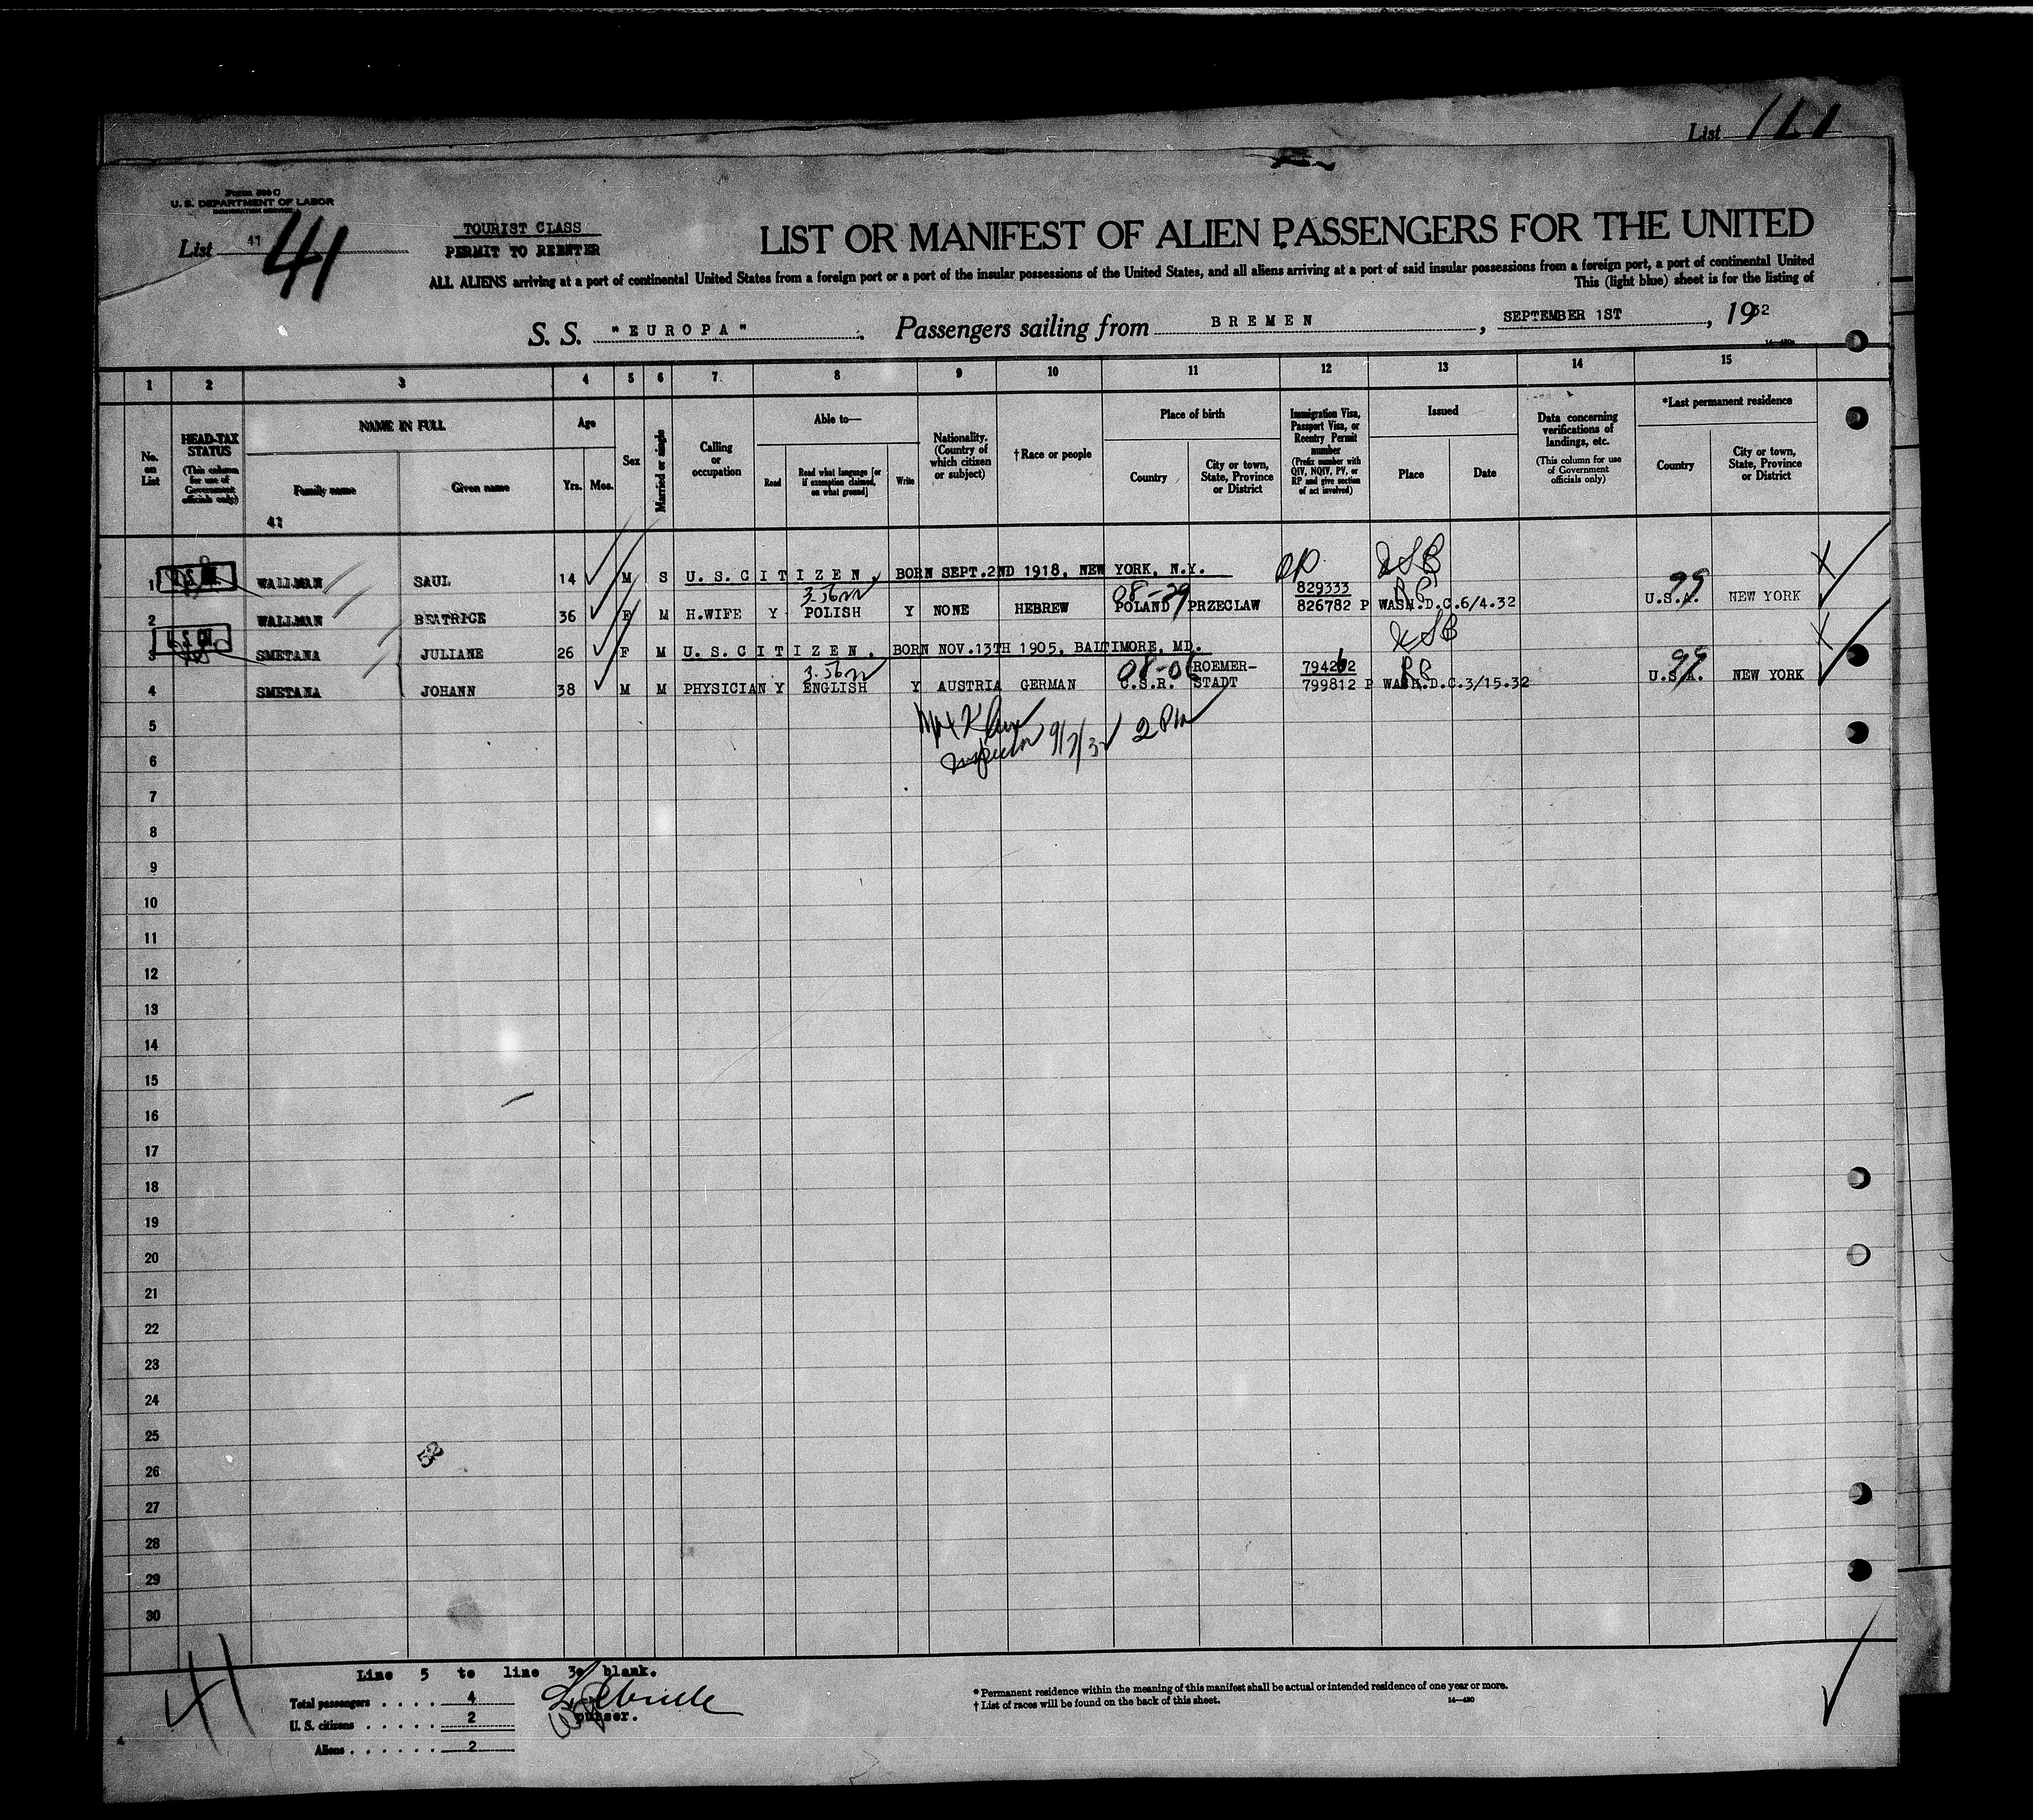 List 111
Form 500 C
U. S. DEPARTMENT OF LABOR
IMMIGRATION SERVICE
List 41 41
TOURIST CLASS
PERMIT TO REENTER
LIST OR MANIFEST OF ALIEN PASSENGERS FOR THE UNITED
ALL ALIENS arriving at a port of continental United States from a foreign port or a port of the insular possessions of the United States, and all aliens arriving at a port of said insular possessions from a foreign port, a port of continental United
This (light blue) sheet is for the listing of
S. S. "EUROPA" Passengers sailing from BREMEN, SEPTEMBER 1ST, 1932
1 2 3 4 5 6 7 8 9 10 11 12 13 14 15
No. on List
HEAD-TAX STATUS (This column for use of Government officials only)
NAME IN FULL
Family name Given name
Age
Yrs. Mos.
Sex
Married or single
Calling or occupation
Able to—
Read Read what language [or if exemption claimed, on what ground] Write
Nationality. (Country of which citizen or subject)
† Race or people
Place of birth
Country City or town, State, Province or District
Immigration Visa, Passport Visa, or Reentry Permit number (Prefix number with QIV, NQIV, PV, or RP and give section of act involved)
Issued
Place Date
Data concerning verifications of landings, etc. (This column for use of Government officials only)
*Last permanent residence
Country City or town, State, Province or District
41
1 WALLMAN SAUL 14 M S U. S. C I T I Z E N , BORN SEPT.2ND 1918, NEW YORK, N.Y.
829333
2 WALLMAN BEATRICE 36 F M H.WIFE Y POLISH Y NONE HEBREW POLAND PRZECLAW 826782 P WASH.D.C.6/4.32 U.S.A. NEW YORK
3 SMETANA JULIANE 26 F M U. S. C I T I Z E N , BORN NOV.13TH 1905, BALTIMORE, MD.
ROEMER- 794262
4 SMETANA JOHANN 38 M M PHYSICIAN Y ENGLISH Y AUSTRIA GERMAN C.S.R. STADT 799812 P WASH.D.C.3/15.32 U.S.A. NEW YORK
5
Inspector 9/7/32 2 PM
6
7
8
9
10
11
12
13
14
15
16
17
18
19
20
21
22
23
24
25
26
27
28
29
30
41
Line 5 to line 30 blank.
Total passengers . . . . 4
U. S. citizens . . . . . 2
Aliens . . . . . . 2
purser.
* Permanent residence within the meaning of this manifest shall be actual or intended residence of one year or more.
† List of races will be found on the back of this sheet.
14—430